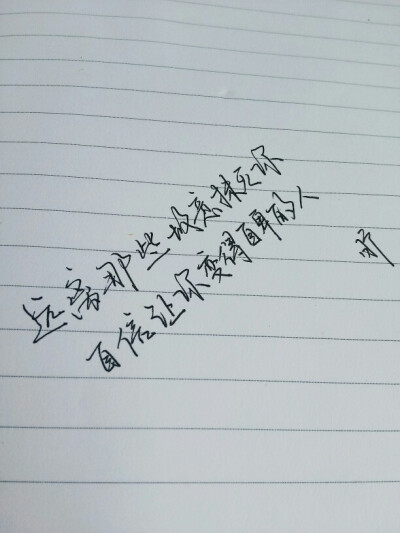 远离那些故意抹你
自信让你变得自卑的人